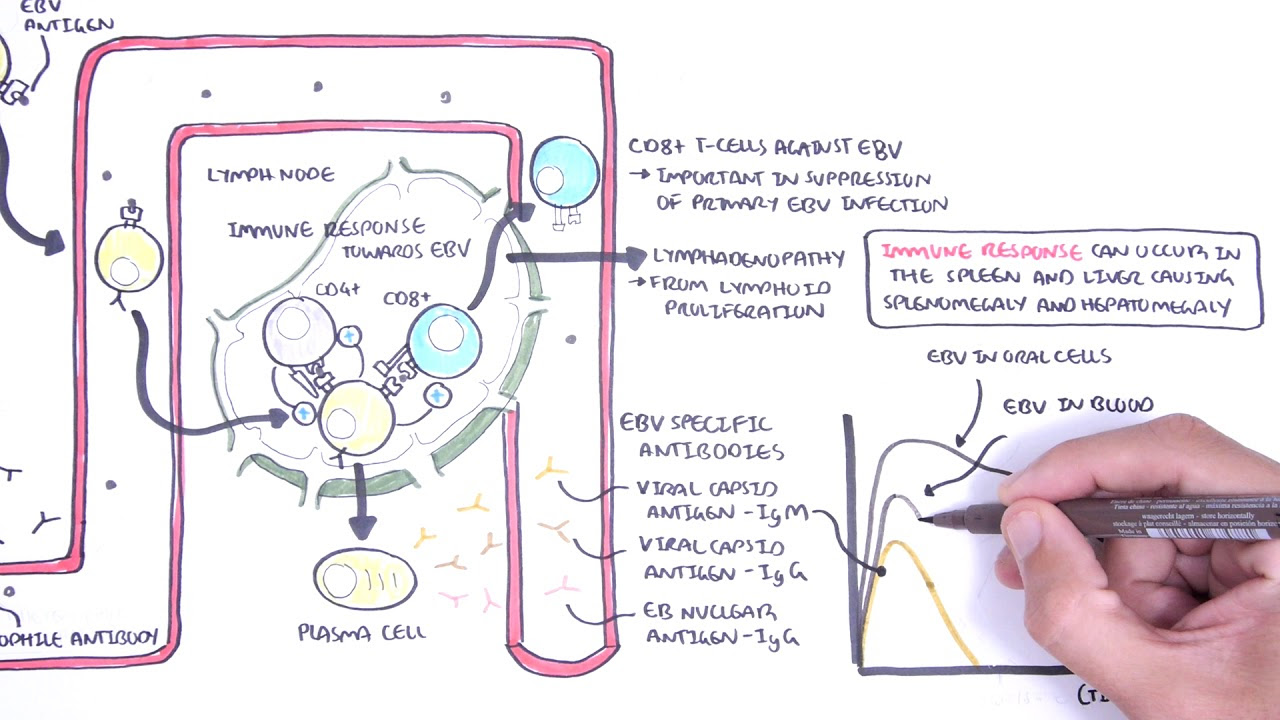 EBV
ANTIGEN
LYMPH NODE
IMMUNE RESPONSE
TOWARDS EBV
CD4+
CD8+
+
+
+
PLASMA CELL
OPHILE ANTIBODY
CD8+ T-CELLS AGAINST EBV
→ IMPORTANT IN SUPPRESSION
OF PRIMARY EBV INFECTION
LYMPHADENOPATHY
→ FROM LYMPHOID
PROLIFERATION
IMMUNE RESPONSE CAN OCCUR IN
THE SPLEEN AND LIVER CAUSING
SPLENOMEGALY AND HEPATOMEGALY
EBV SPECIFIC
ANTIBODIES
VIRAL CAPSID
ANTIGEN - IgM
VIRAL CAPSID
ANTIGEN - IgG
EB NUCLEAR
ANTIGEN - IgG
EBV IN ORAL CELLS
EBV IN BLOOD
(TI